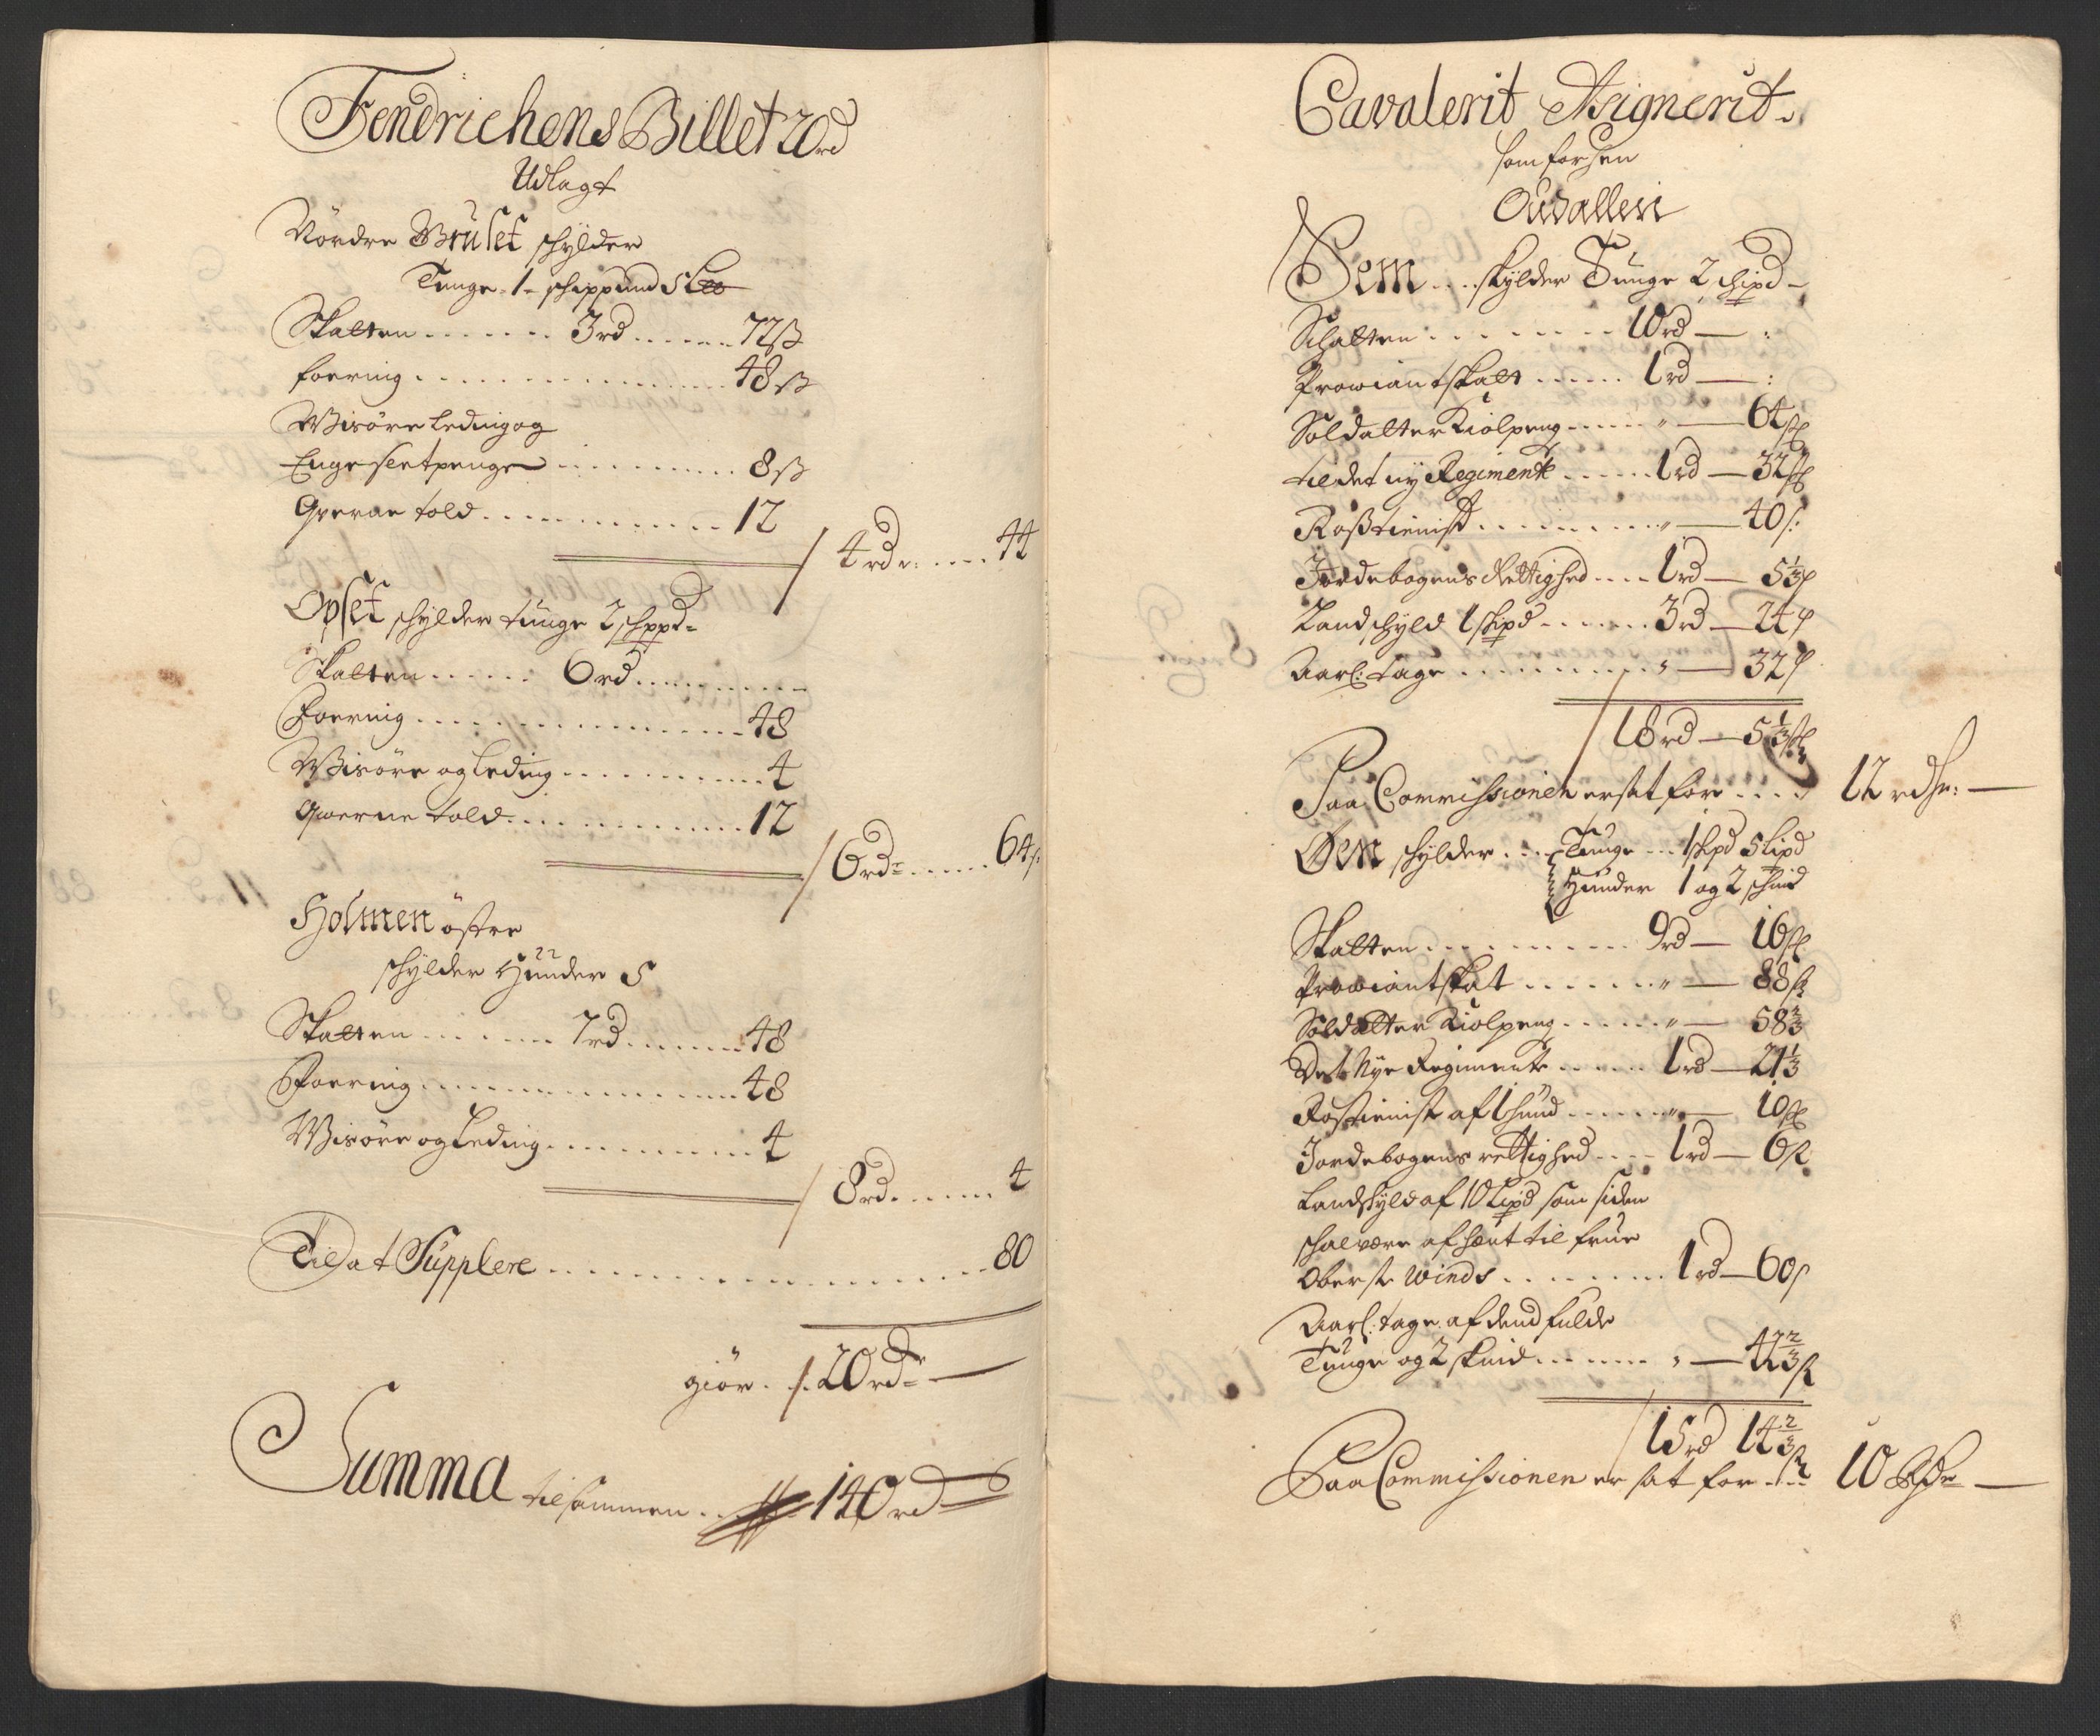 Fendrichens Billet 20 rd
Udlagt
Nördre Bruset schÿlder
Tunge 1 schippund 5 L
Skatten ....... 3 rd ...... 72 ß
foering ................ 48 ß
Wisöre Leding og
Enge sletpenge ........ 8 ß
Qverne told ............ 12
4 rdr: .... 44
Opset schÿlder tunge 2 schppd=
Skatten ...... 6 rd ..........
Foering ................ 48
Wisöre og Leding .......... 4
Qwerne told ............ 12
6 rdr ...... 64 s:
Holmen östre
schÿlder Hunder 5
Skatten ....... 7 rd ...... 48
Foering ................ 48
Wisöre og Leding .......... 4
8 rd ...... 4
Til at Supplere ................ 80
giör . /. 20 rdr = —
Summa tilsammen ... 140 rd
Cavalerit Asignerit.
som forsen
Oudallen
Sem .... skÿlder Tunge 2 schipd —
Schatten ......... 10 rd — :
Prowiantskatt ...... 1 rd — :
Soldatter Kiolpeng ..... " — 64 ß
til det nÿ Regimente ..... 1 rd — 32 ß
Roßtienist ......... " — 40 s:
Jordebogens Rettighed .... 1 rd — 5 1/3 ß
Landschÿld 1 skipd ...... 3 rd — 24 ß
Aarl: tage .......... " — 32 ß
18 rd — 5 1/3 ß
Paa Commissionen ersat for .... 12 rdr: —
Öen schÿlder ... Tunge ... 1 skpd 5 Lispd
Hunder 1 og 2 schind
Skatten ......... 9 rd — 16 ß
Prowiantskat ....... " — 88 ß
Soldatter Kiolpeng ...... " — 58 2/3
Det Nÿe Regimente ...... 1 rd — 21 1/3
Rostienist af 1 hund ...... " — 10 ß
Jordebogens rettighed .... 1 rd — 6 ß
Landskÿld af 10 Lispd som siden
schal være afhent til frue
Oberste Winds ........ 1 rd — 60 s
Aarl: tage af dend fulde
Tunge og 2 skind ....... " — 42 2/3 ß
15 rd 14 2/3 ß
Paa Commissionen er sat for ... 10 Rdr —